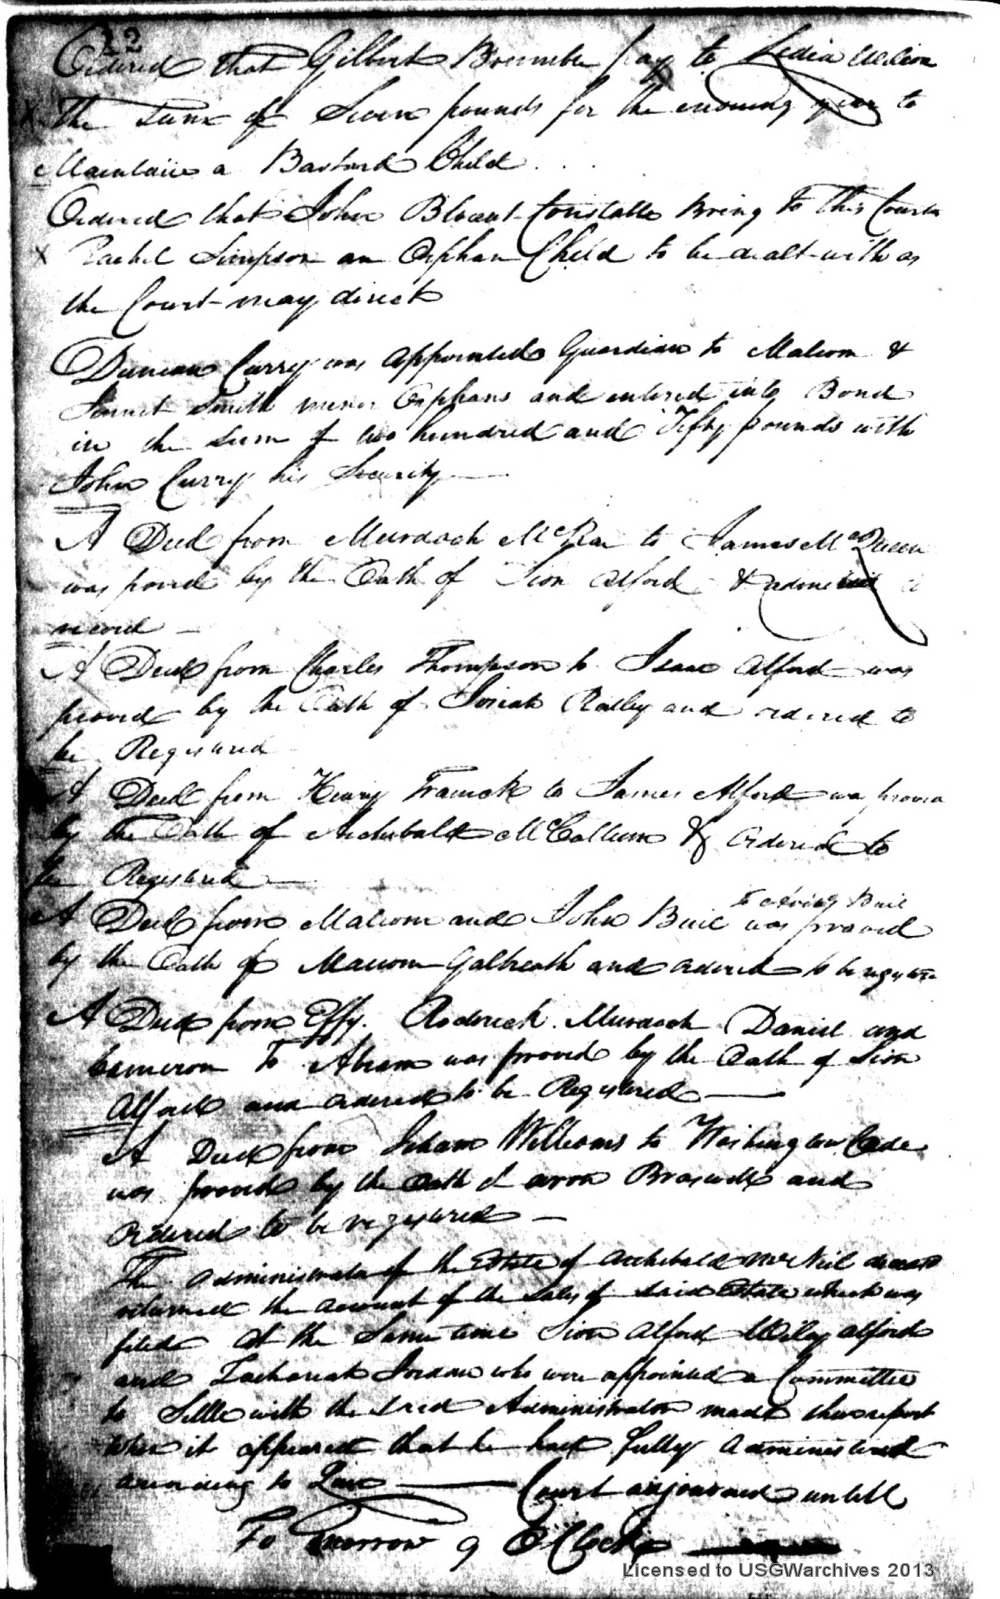 12
Ordered that Gilbert pay to Lidia
The Sum of Seven pounds for the ensuing year to
Maintain a Bastard Child
Ordered that John Blount Constable bring to this Court
Rachel Simpson an Orphan Child to be dealt with as
the Court may direct
Duncan Curry was appointed Guardian to Malcom &
Smith minor Orphans and entered into Bond
in the Sum of two hundred and Fifty pounds with
John Curry his Security
A Deed from Murdoch McRae to James McQueen
was proved by the Oath of Sion Alford &
record
A Deed from Charles Thompson to Isaac Alford was
proved by the Oath of Josiah Railey and ordered to
be Registered
A Deed from Henry to James Alford was proved
by the Oath of Archibald McCallum & Ordered to
be Registered
A Deed from Malcom and John Buie was proved
by the Oath of Malcom Galbreath and ordered to be
A Deed from Effy. Roderick. Murdoch Daniel and
Cameron To Abram was proved by the Oath of Sion
Alford and ordered to be Registered
A Deed from Isham Williams to Washington Cade
was proved by the Oath of aron Braswell and
Ordered to be registered
The administrator of the Estate of Archibald McNeil
returned the account of the Sales of said Estate which was
filed At the Same time Sion Alford Wiley alford
and Zachariah Jordan who were appointed a Committee
to Settle with the said Administrator made their report
when it appeared that he had fully administered
according to Law Court adjourned untill
To Morrow 9 O Clock
Licensed to USGWarchives 2013